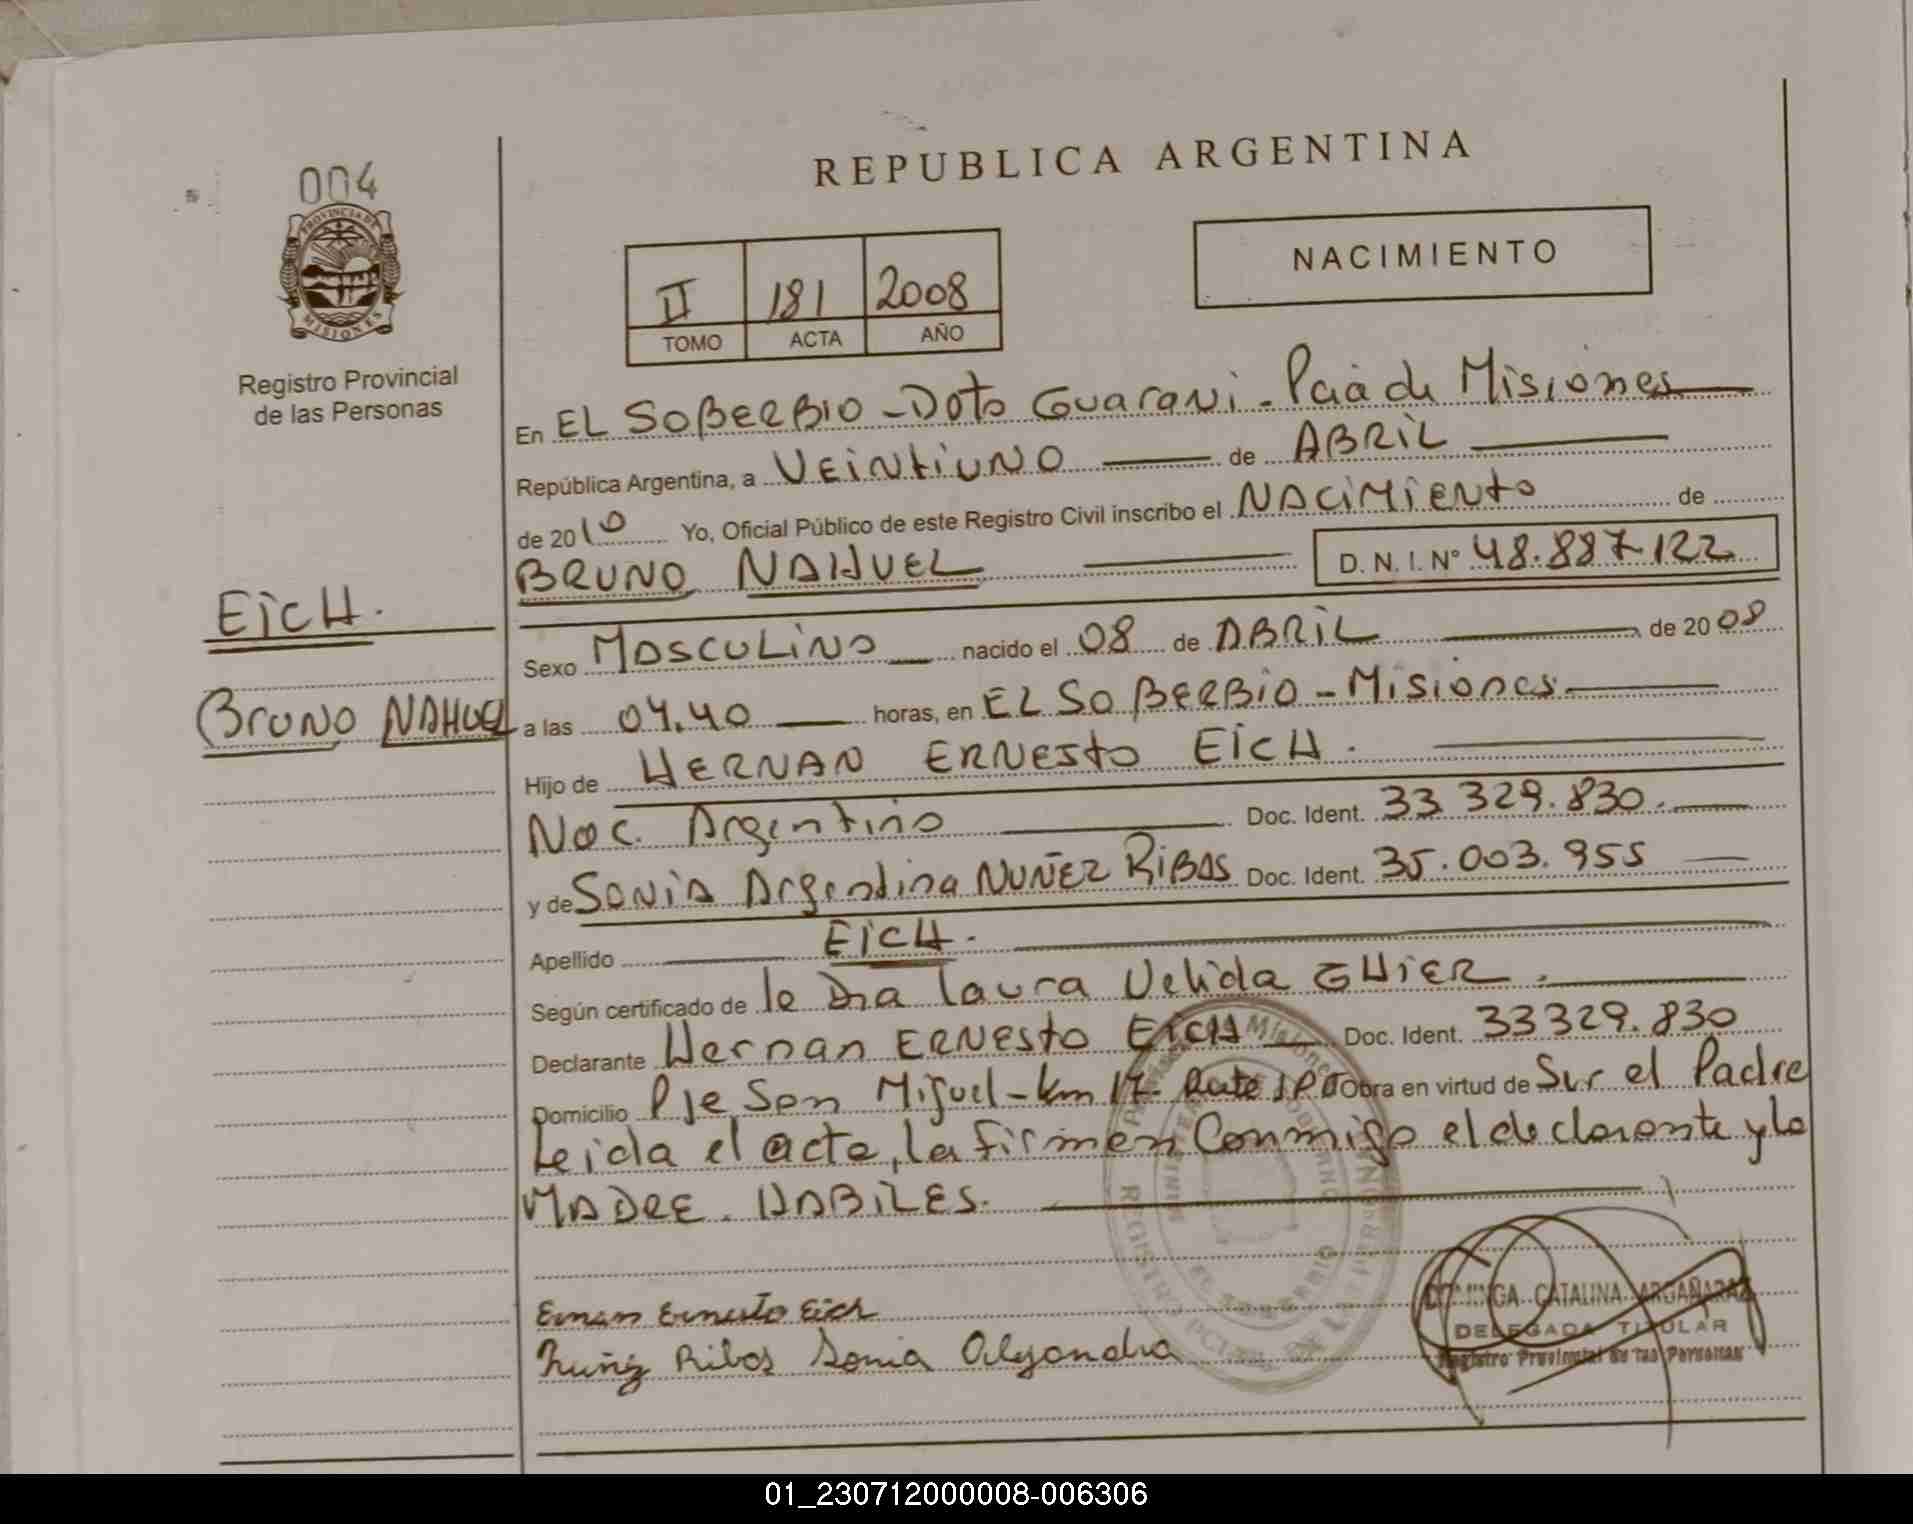 REPUBLICA ARGENTINA
004
PROVINCIA DE
MISIONES
Registro Provincial
de las Personas
II 181 2008
TOMO ACTA AÑO
NACIMIENTO
En EL SOBERBIO - Dpto Guarani - Pcia de Misiones
República Argentina, a VEiNtiUNO de ABRiL
de 2010 Yo, Oficial Público de este Registro Civil inscribo el NACiMiENto de
BRUNO NAHUEL D. N. I. Nº 48.887.122
EiCH.
Sexo MASCULiNO nacido el 08 de ABRiL de 2008
BRUNO NAHUEL
a las 04.40 horas, en EL SOBERBiO - Misiones
Hijo de HERNAN ERNESto EiCH.
Nac. Argentino Doc. Ident. 33 329.830.
y de SONiA Argentina NUÑEZ RiBAS Doc. Ident. 35.003.955
Apellido EiCH.
Según certificado de la Dra Laura Velida GHiER.
Declarante Hernan ERNESto EiCH Doc. Ident. 33329.830
Domicilio Pje San Miguel - km 17. Obra en virtud de Ser el Padre
Leida el acta, la firman Conmigo el declarante y la
MADRE. HABiLES.
Ernan Ernesto Eich
Nuñez Ribas Sonia Alejandra
DOMINGA CATALINA ARGAÑARAZ
DELEGADA TITULAR
Registro Provincial de las Personas
01_230712000008-006306